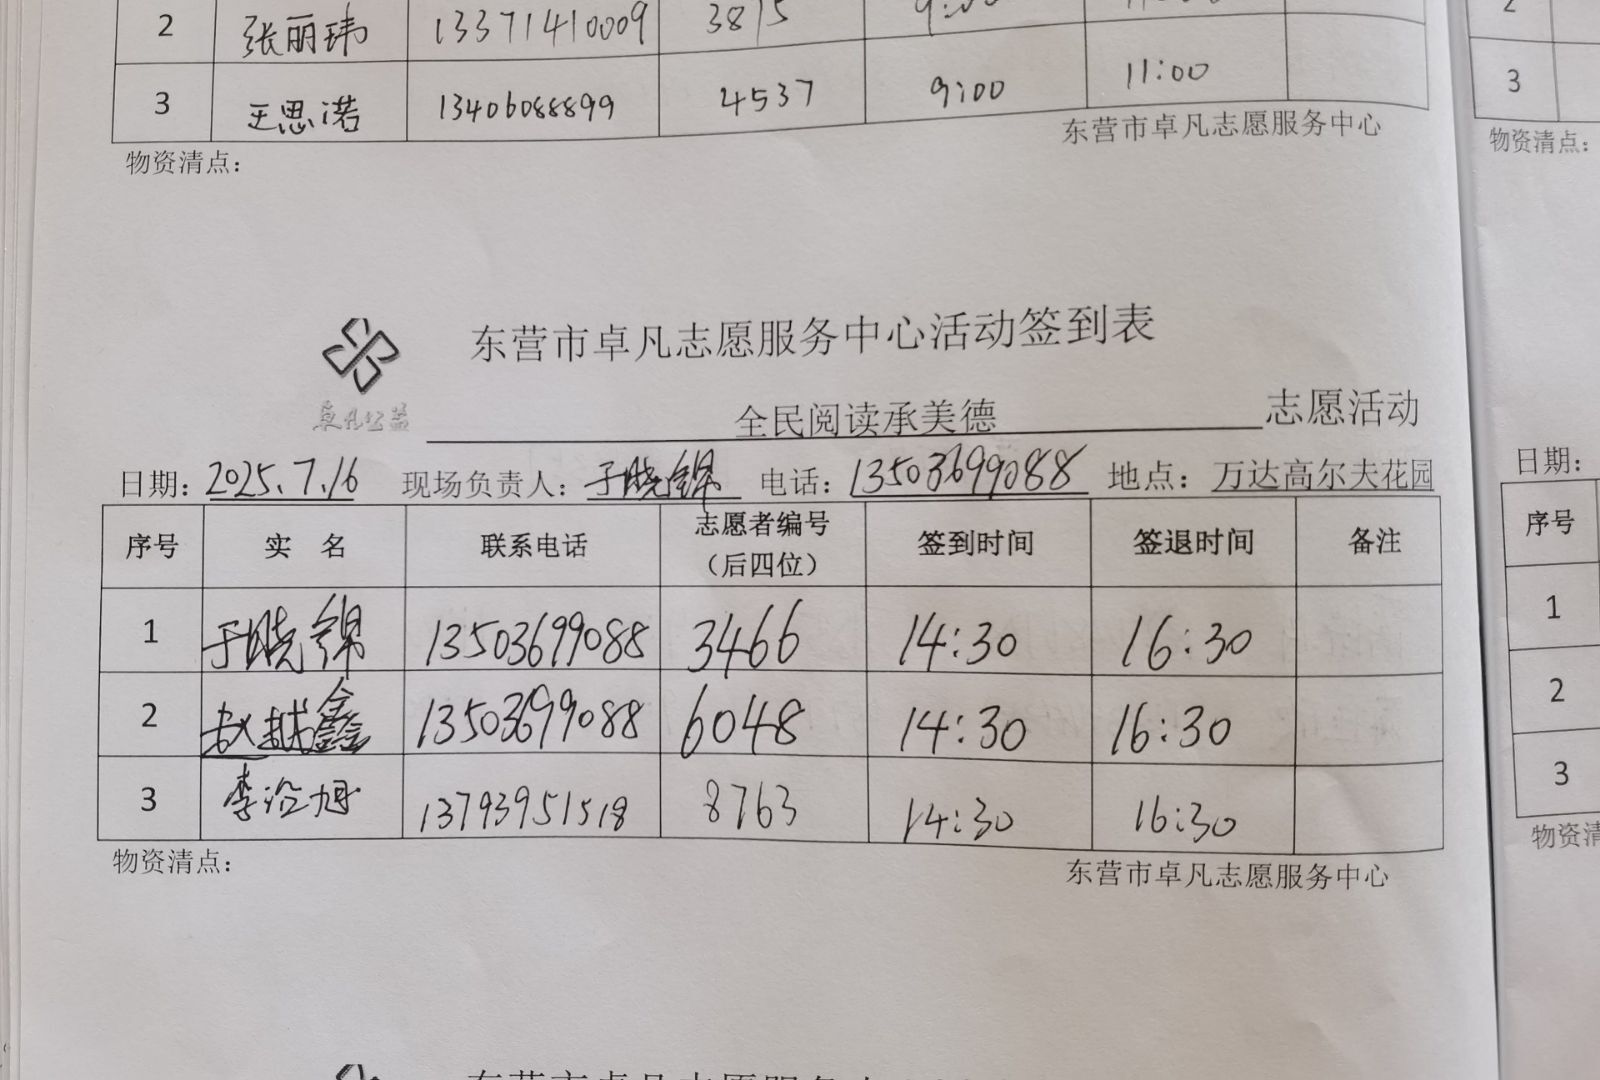 2 张丽玮 13371410009 3815
3 王思诺 13406088899 4537 9:00 11:00
物资清点： 东营市卓凡志愿服务中心
东营市卓凡志愿服务中心活动签到表
卓凡公益
全民阅读承美德 志愿活动
日期：2025.7.16 现场负责人：于晓锦 电话：13503699088 地点：万达高尔夫花园
序号 实 名 联系电话 志愿者编号 签到时间 签退时间 备注
（后四位）
1 于晓锦 13503699088 3466 14:30 16:30
2 赵越鑫 13503699088 6048 14:30 16:30
3 李 旭 13793951518 8763 14:30 16:30
物资清点： 东营市卓凡志愿服务中心
2
3
物资清点：
日期：
序号
1
2
3
物资清